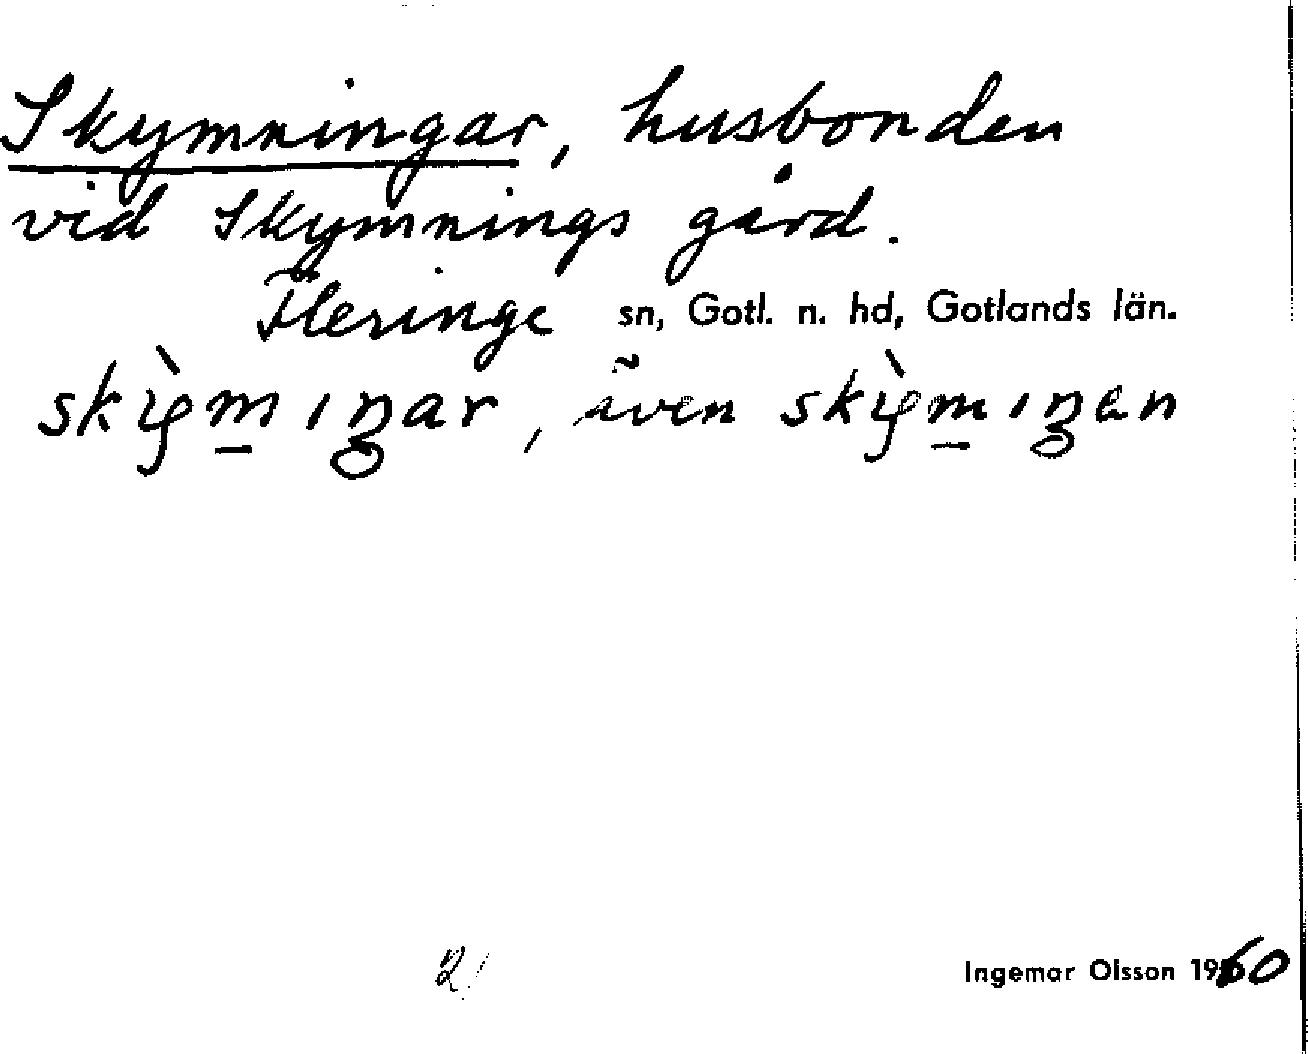 Skymningar, husbonden
vid Skymnings gård.
Fleringe sn, Gotl. n. hd, Gotlands län.
även
2
Ingemar Olsson 1960